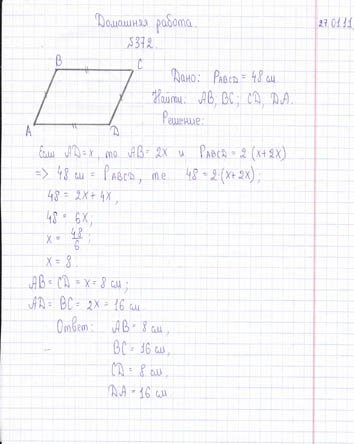 Домашняя работа.
27.01.11
№372.
B
C
A
D
Дано: P ABCD = 48 см
Найти: AB, BC; CD, DA.
Решение:
Если AD = x, то AB = 2x и P ABCD = 2 (x+2x)
=> 48 см = P ABCD, т.е. 48 = 2·(x+2x);
48 = 2x + 4x,
48 = 6x,
x = 48/6;
x = 8.
AB = CD = x = 8 см;
AD = BC = 2x = 16 см
Ответ: AB = 8 см,
BC = 16 см,
CD = 8 см.
DA = 16 см.